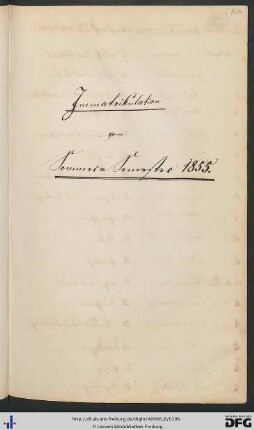 Immatrikulation
vom
Sommer= Semester 1855.
http://dl.ub.uni-freiburg.de/diglit/
© Universitätsbibliothek Freiburg
gefördert durch
DFG